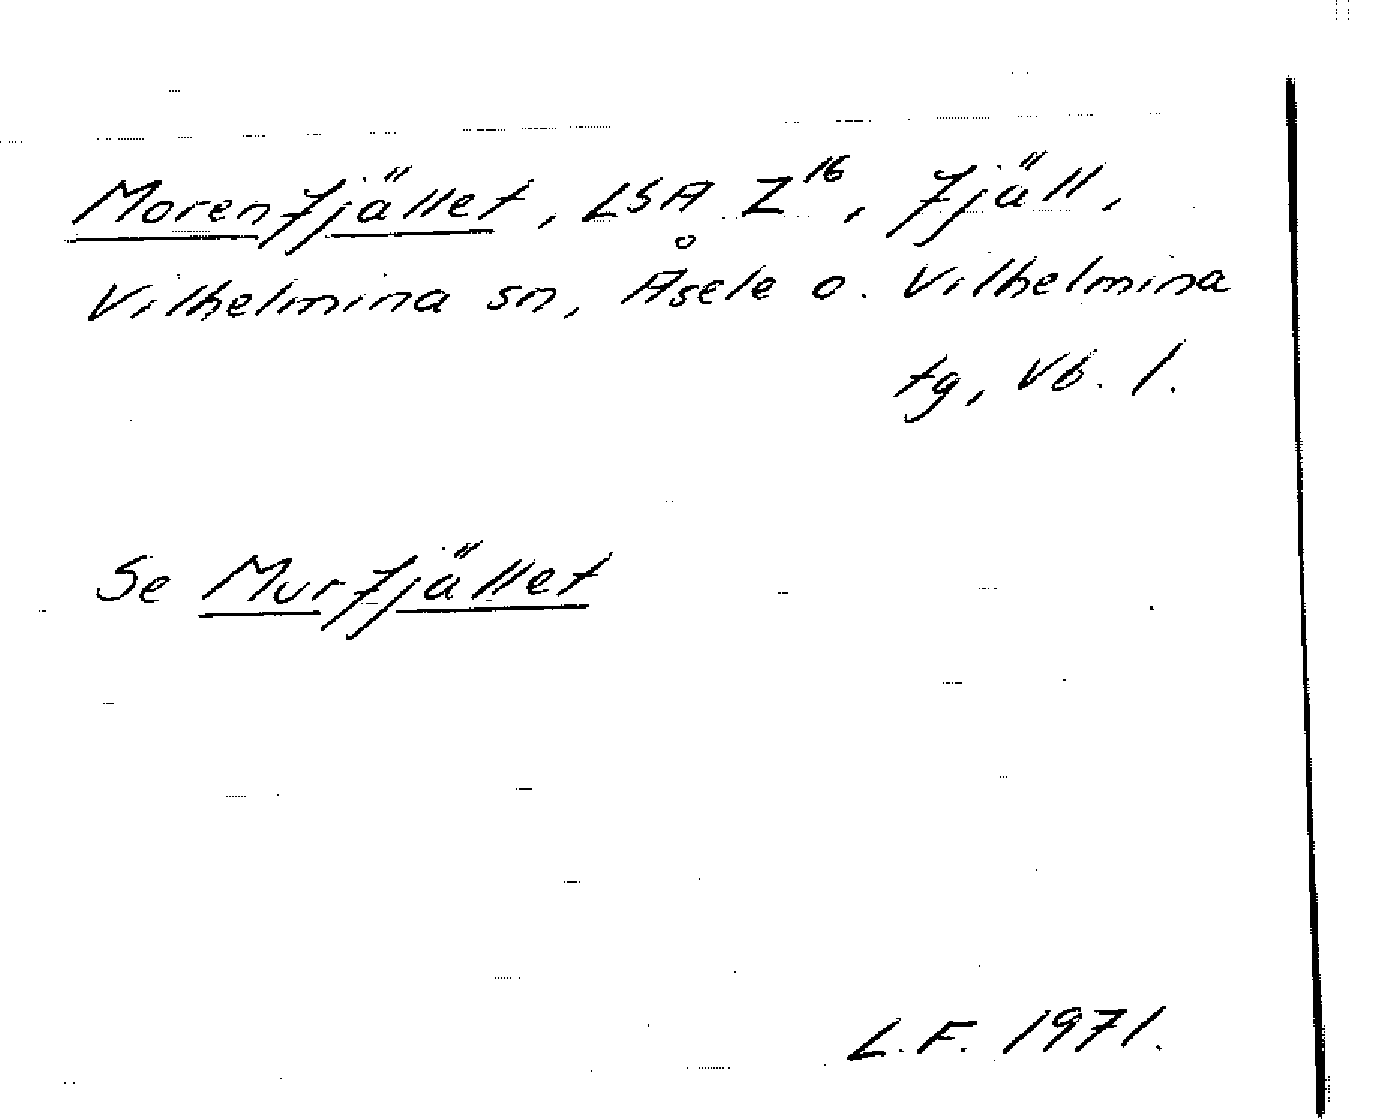 Morenfjället, LSA Z16, fjäll,
Vilhelmina sn, Åsele o. Vilhelmina
tg, Vb. l.
Se Murfjället
L.F. 1971.